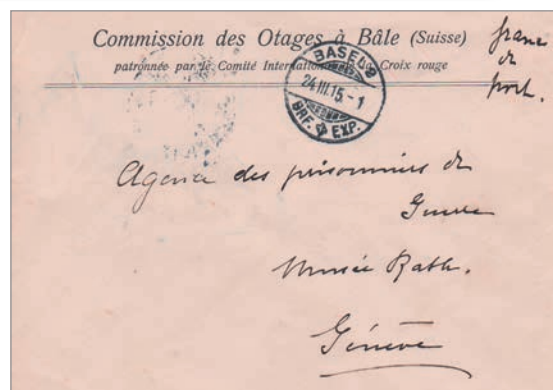 Commission des Otages à Bâle (Suisse)
patronnée par le Comité International de la Croix rouge
franc
de
port.
BASEL 2
24.III.15.-1
BRF. EXP.
Agence des prisonniers de
Guerre
Musée Rath.
Génève